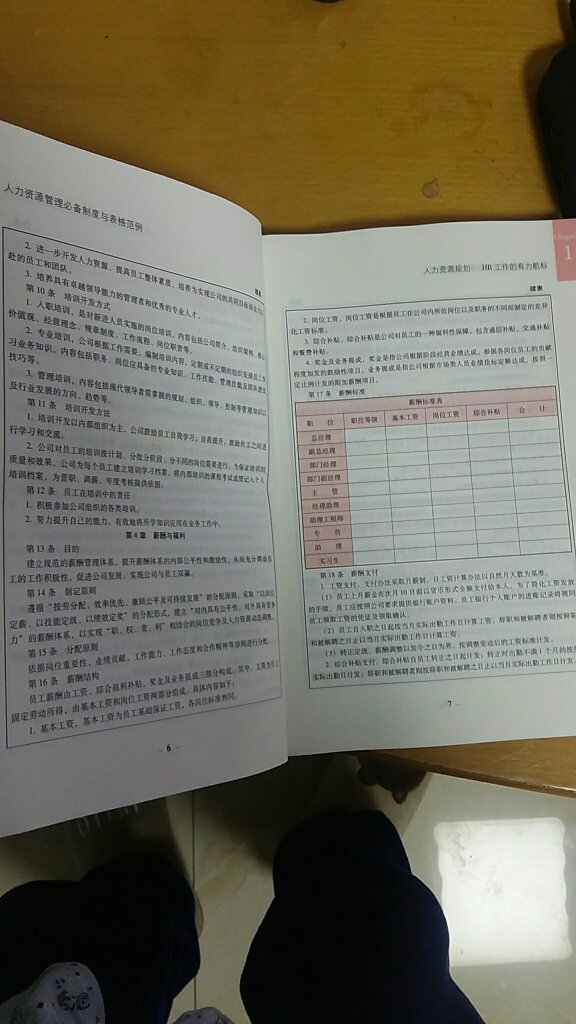 人力资源管理必备制度与表格范例
续表
2. 进一步开发人力资源、提高员工整体素质,培养为实现公司的共同目标而全力以
赴的员工和团队。
3. 培养具有卓越领导能力的管理者和优秀的专业人才。
第10条 培训开发方式
1. 入职培训,是对新进人员实施的岗位培训,内容包括公司简介、组织架构、核心
价值观、经营理念、规章制度、工作流程、岗位职责等。
2. 专业培训,公司根据工作需要,编制培训内容,定期或不定期的组织安排员工学
习业务知识,内容包括职务、岗位应具备的专业知识、工作技能、管理技能及团队建设
技巧等。
3. 管理培训,内容包括现代领导者需掌握的规划、组织、领导、控制等管理知识以
及行业发展的方向、趋势等。
第11条 培训开发方法
1. 培训开发以内部组织为主、公司鼓励员工自我学习,自我提升,鼓励员工之间进
行学习和交流。
2. 公司对员工的培训按计划、分批分阶段、分不同的岗位需要进行,为保证培训的
质量和效果,公司为每个员工建立培训学习档案,将内部培训的课程考试成绩记入个人
培训档案,为晋职、调薪、年度考核提供依据。
第12条 员工在培训中的责任
1. 积极参加公司组织的各类培训。
2. 努力提升自己的能力,有效地将所学知识应用在业务工作中。
第4章 薪酬与福利
第13条 目的
建立规范的薪酬管理体系,提升薪酬体系的内部公平性和激励性,从而充分调动员
工的工作积极性,促进公司发展,实现公司与员工双赢。
第14条 制定原则
遵循“按劳分配、效率优先、兼顾公平及可持续发展”的分配原则,采取“以岗位
定薪、以技能定级、以绩效定奖”的分配形式,建立“对内具有公平性、对外具有竞争
力”的薪酬体系,以实现“职、权、责、利”相结合的岗位竞争及人力资源动态调整。
第15条 分配原则
依据岗位重要性、业绩贡献、工作能力、工作态度和合作精神等原则进行分配。
第16条 薪酬结构
员工薪酬由工资、综合福利补贴、奖金及业务提成三部分构成。其中,工资为员工
固定劳动所得,由基本工资和岗位工资两部分组成。具体内容如下:
1. 基本工资,基本工资为员工基础保证工资,各岗位标准相同。
6
Chapter
1
人力资源规划 HR工作的有力航标
续表
2. 岗位工资,岗位工资是根据员工在公司内所处岗位以及职务的不同而制定的差异
化工资标准。
3. 综合补贴,综合补贴是公司对员工的一种福利性保障,包含通信补贴、交通补贴
和餐费补贴。
4. 奖金及业务提成,奖金是指公司根据阶段经营业绩达成,根据各岗位员工的贡献
程度加发的鼓励性项目。业务提成是指公司根据市场类人员业绩指标定额达成,按照一
定比例计发的附加薪酬项目。
第17条 薪酬标准
薪酬标准表
职 位 职位等级 基本工资 岗位工资 综合补贴 合 计
总经理
副总经理
部门经理
部门副经理
主 管
经理助理
助理工程师
专 员
助 理
实习生
第18条 薪酬支付
1. 工资支付,支付办法采取月薪制,日工资计算办法以自然月天数为基准。
(1)员工上月薪金在次月10日前以货币形式全额支付给本人。为了简化工资发放
的手续,员工应按照公司要求提供银行账户资料。员工银行个人账户的进账记录将视同
员工领取工资的凭证及领取确认。
(2)员工自入职之日起按当月实际出勤工作日计算工资,辞职和被解聘者则按辞职
和被解聘之日止以当月实际出勤工作日计算工资。
(3)转正定级、薪酬调整以发令之日为界。按调整变动后的工资标准计发。
2. 综合补贴支付,综合补贴自员工转正之日起计发;转正对出勤不满1个月的按照
实际出勤日计发;辞职和被解聘者则按辞职和被解聘之日止以当月实际出勤日计发。
7